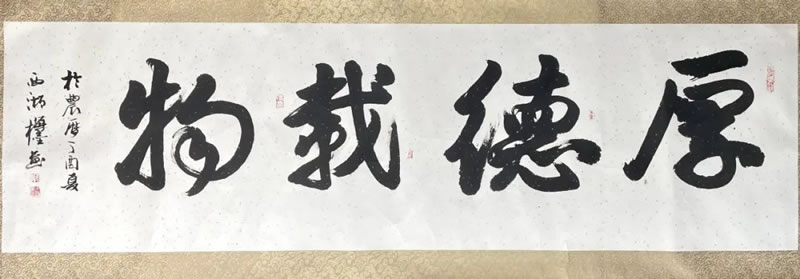 厚德載物
於農曆丁酉夏
西湖